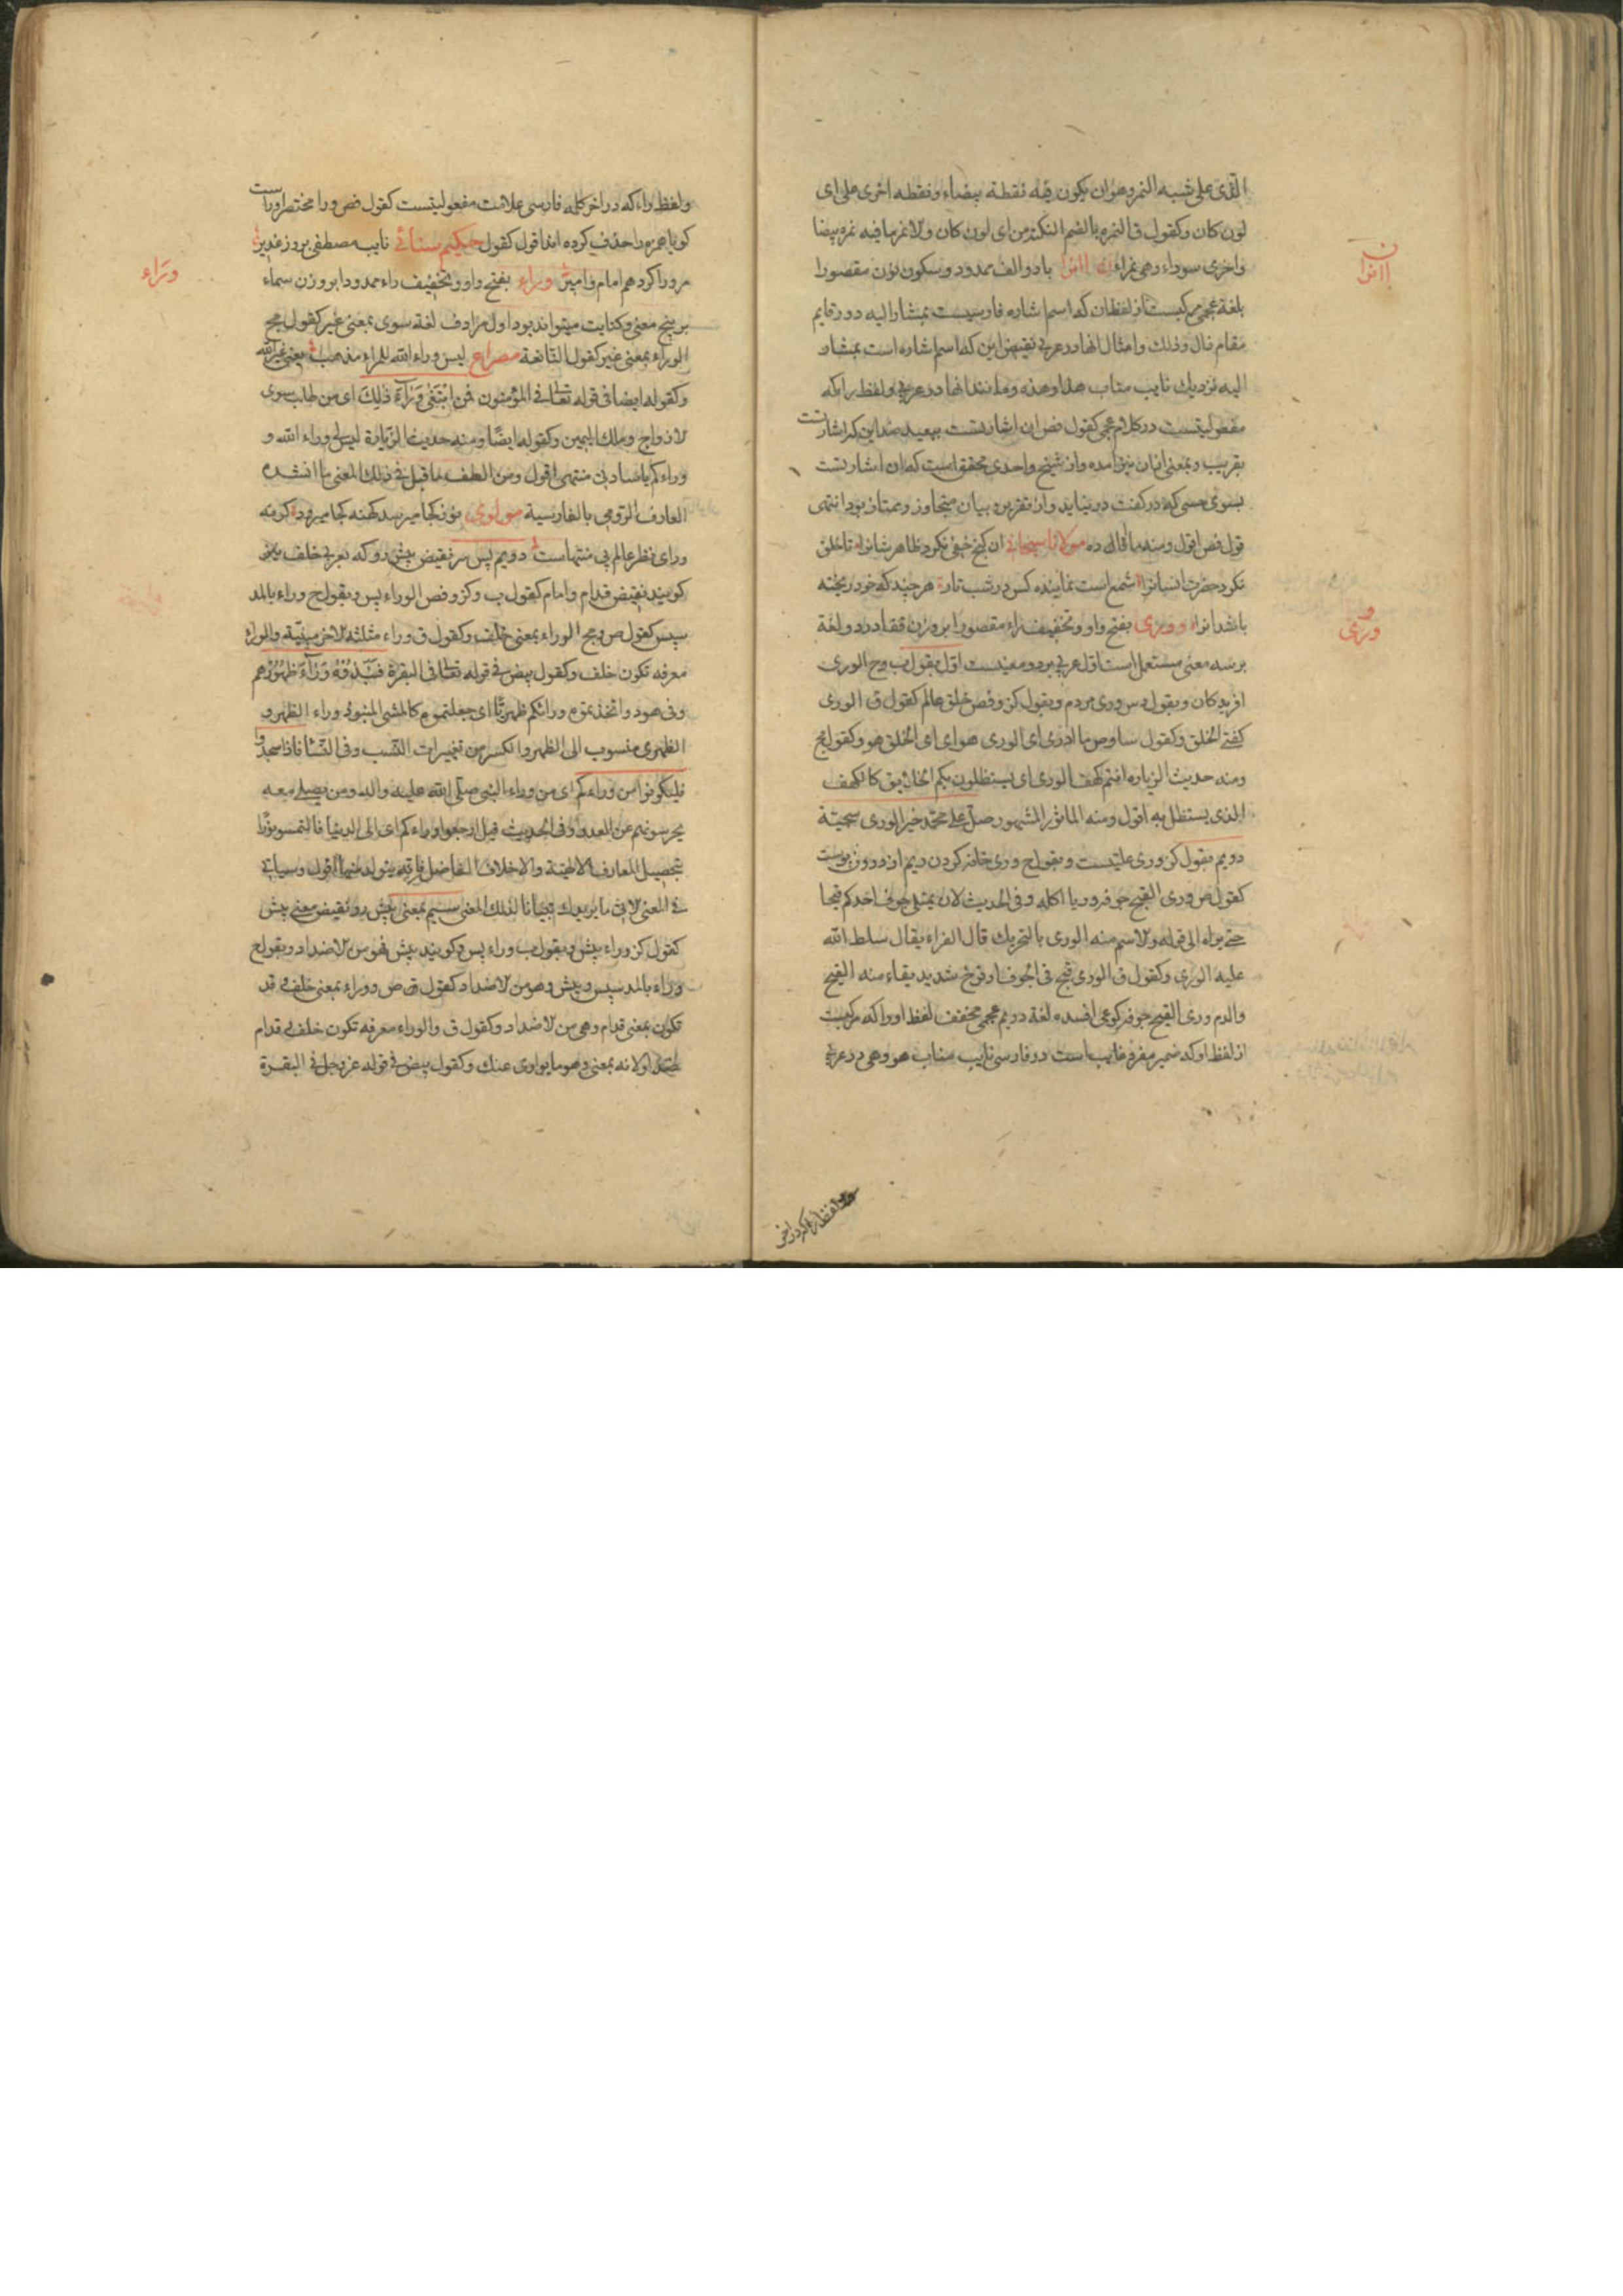 الذی علی شبه النمر وهو ان یکون فیه نقطة بیضاء ونقطه اخری علی ای
لون کان وکقول ق النمره بالضم النکتة من ای لون کان والانمر مافیه نمره بیضا
واخری سوداء وهی نمراء آنرا بادو الف ممدود وسکون نون مقصورا
بلغة عجمی مرکبست از لفظ ان که اسم اشاره فارسیست بمشار الیه دور قایم
مقام ذاک وذلک وامثال انها در عربی نقیض این که اسم اشاره است بمشار
الیه نزدیک نایب مناب هذا وهذه ومانند انها در عربی ولفظ را که
مفعولیتست در کلام عجم کقول فض ان اشارتست ببعید ضد این که اشارتست
بقریب وبمعنی انان نیز امده واز شیخ واحدی محقق است که ان اشارتست
بسوی حسی که در کفت در نیاید واز تقریر وبیان متجاوز وممتاز بود انتهی
قول فض اقول ومنه ما قال ده مولانا سبحانی ان کنج خفی نکرد ظاهر شانرا تا خلق
نکرد حضرت انسانرا شمع است نماینده کس در شب تار هر چند که خود ریخته
باشد انرا وری بفتح واو وتخفیف راء مقصورا بر وزن قفا در دو لغة
بر سه معنی مستعمل است اول عربی بر دو معنیست اول بقول ب وح الوری
افریدکان وبقول دس وری مردم وبقول کز وفض خلق عالم کقول ق الوری
کفتی الخلق وکقول سا وص ما ادری ای الوری هو ای ای الخلق هو وکقول مج
ومنه حدیث الزیاره انتم کهف الوری ای یستظلون بکم الخلائق کالکهف
الذی یستظل به اقول ومنه الماثور المشهور صل علی محمد خیر الوری سجیة
دویم بقول کز وری علتیست وبقول ح وری تباه کردن ریم اندرون پوست
کقول ص وری القیح جوفه وریا اکله وفی الحدیث لان یمتلی جوف احدکم قیحا
حتی یراه الی قوله والاسم منه الوری بالتحریک قال الفراء یقال سلط الله
علیه الوری وکقول ق الوری قیح فی الجوف او قرح شدید یقاء منه القیح
والدم وری القیح جوفه کوعی افسده لغة دویم عجمی مخفف لفظ اورا که مرکبست
از لفظ او که ضمیر مفرد غایب است در فارسی نایب مناب هو وهی در عربی
ولفظ را که در اخر
آنرا
وری
ولفظ راء که در اخر کلمه فارسی علامت مفعولیتست کقول فض ورا مختصر اوراست
کویا همزه را حذف کرده اند اقول کقول حکیم سنائی نایب مصطفی بروز غدیر
مر ورا کرد هم امام وامیر وراء بفتح واو وتخفیف راء ممدودا بر وزن سماء
بر پنج معنی وکنایت میتواند بود اول مرادف لغة سوی بمعنی غیر کقول مج
الوراء بمعنی غیر کقول النابغة مصراع لیس وراء الله للمرء مذهب یعنی غیر الله
وکقوله ایضا فی قوله تعالی فی المؤمنون فمن ابتغی وراء ذلک ای من طلب سوی
الازواج وملک الیمین وکقوله ایضا ومنه حدیث الزیارة لیس لی وراء الله و
وراءکم یا ساداتی منتهی اقول ومن الطف ما قیل فی ذلک المعنی ما انشده
العارف الرومی بالفارسیة مولوی نو ز کجا میرسد کهنه کجا میرود کر نه
ورای نظر عالم بی منتهاست دویم پس سر نقیض پیش رو که بعربی خلف یعنی
کویند نقیض قدام وامام کقول ب وکز وفض الوراء پس وبقول ح وراء بالمد
سپس کقول ص ومج الوراء بمعنی خلف وکقول ق وراء مثلثة الاخر مبنیة والوراء
معرفه تکون خلف وکقول بیض فی قوله تعالی فی البقرة فنبذوه وراء ظهورهم
وفی هود واتخذتموه وراءکم ظهریا ای جعلتموه کالمنسی المنبوذ وراء الظهر و
الظهری منسوب الی الظهر والکسر من تغییرات النسب وفی النساء فاذا سجدوا
فلیکونوا من وراءکم ای من وراء النبی صلی الله علیه واله ومن یصلی معه
یحرسونهم عن العدو وفی الحدیث قیل ارجعوا وراءکم ای الی الدنیا فالتمسوا نورا
بتحصیل المعارف الالهیة والاخلاق الفاضل فانه یتولد منها اقول وسیاتی
فی المعنی الاتی ما یریدک تبیانا لذلک المعنی سیم بمعنی پیش رو نقیض معنی پیش
کقول کز وراء پیش وبقول ب وراء پس وکویند پیش فهو من الاضداد وبقول ح
وراء بالمد سپس وپیش وهو من الاضداد کقول ق ص ووراء بمعنی خلف وقد
تکون بمعنی قدام وهی من الاضداد وکقول ق والوراء معرفه تکون خلف وقدام
ضد او لا لانه بمعنی وهو ما یواری عنک وکقول بیض فی قوله عز وجل فی البقرة
وراء